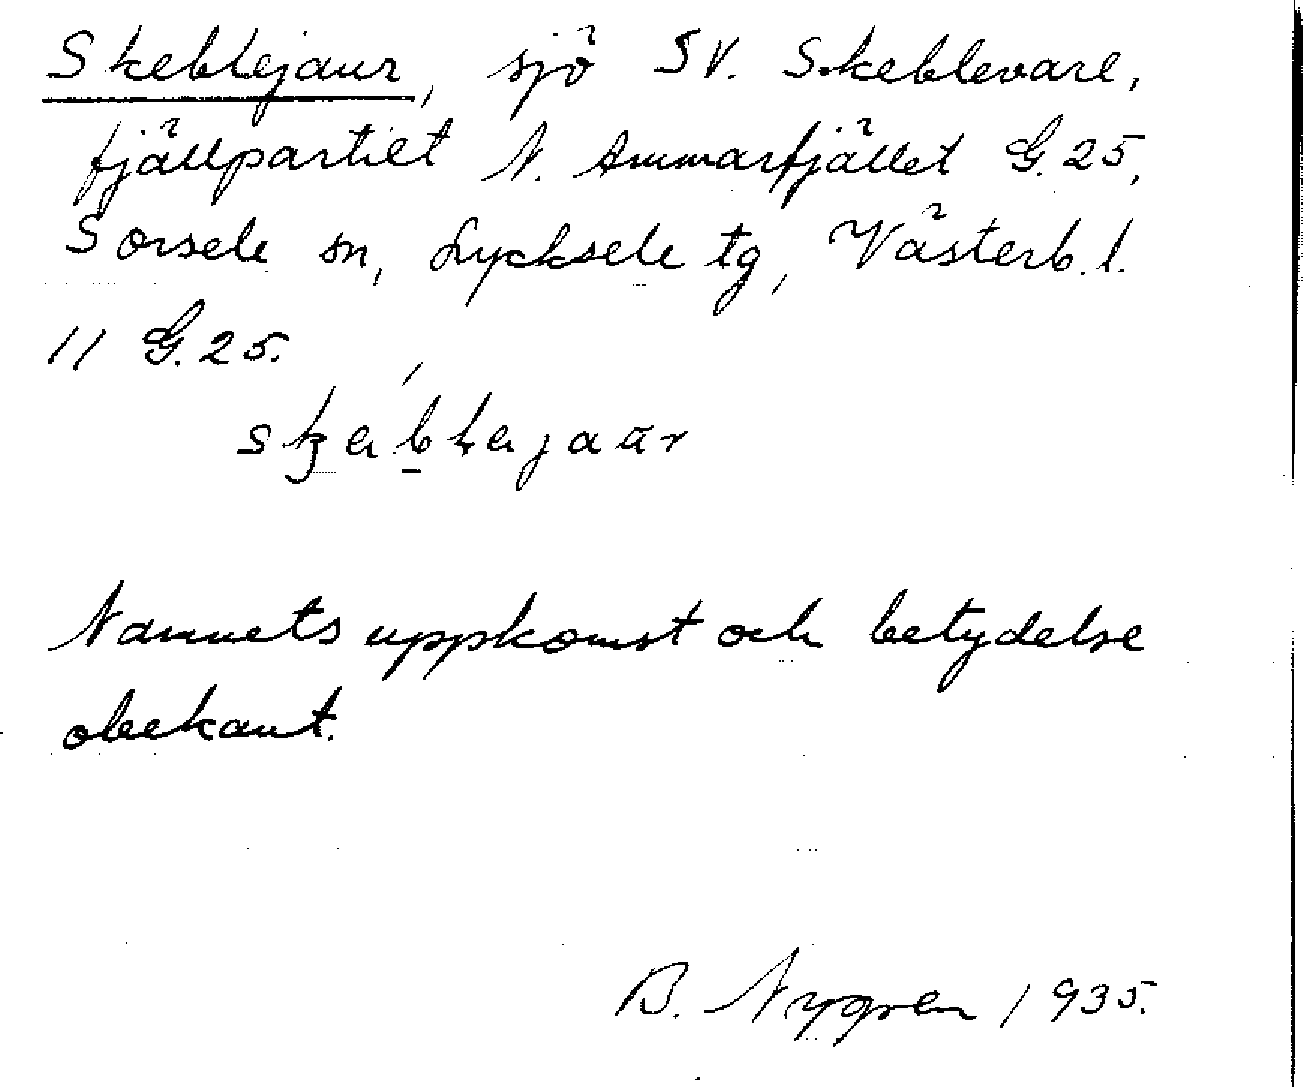 Skeblejaur, sjö SV. Skeblevare,
fjällpartiet N. Ammarfjället G.25,
Sorsele sn, Lycksele tg, Västerb.l.
11 G.25.
Namnets uppkomst och betydelse
obekant.
B. Nygren 1935.